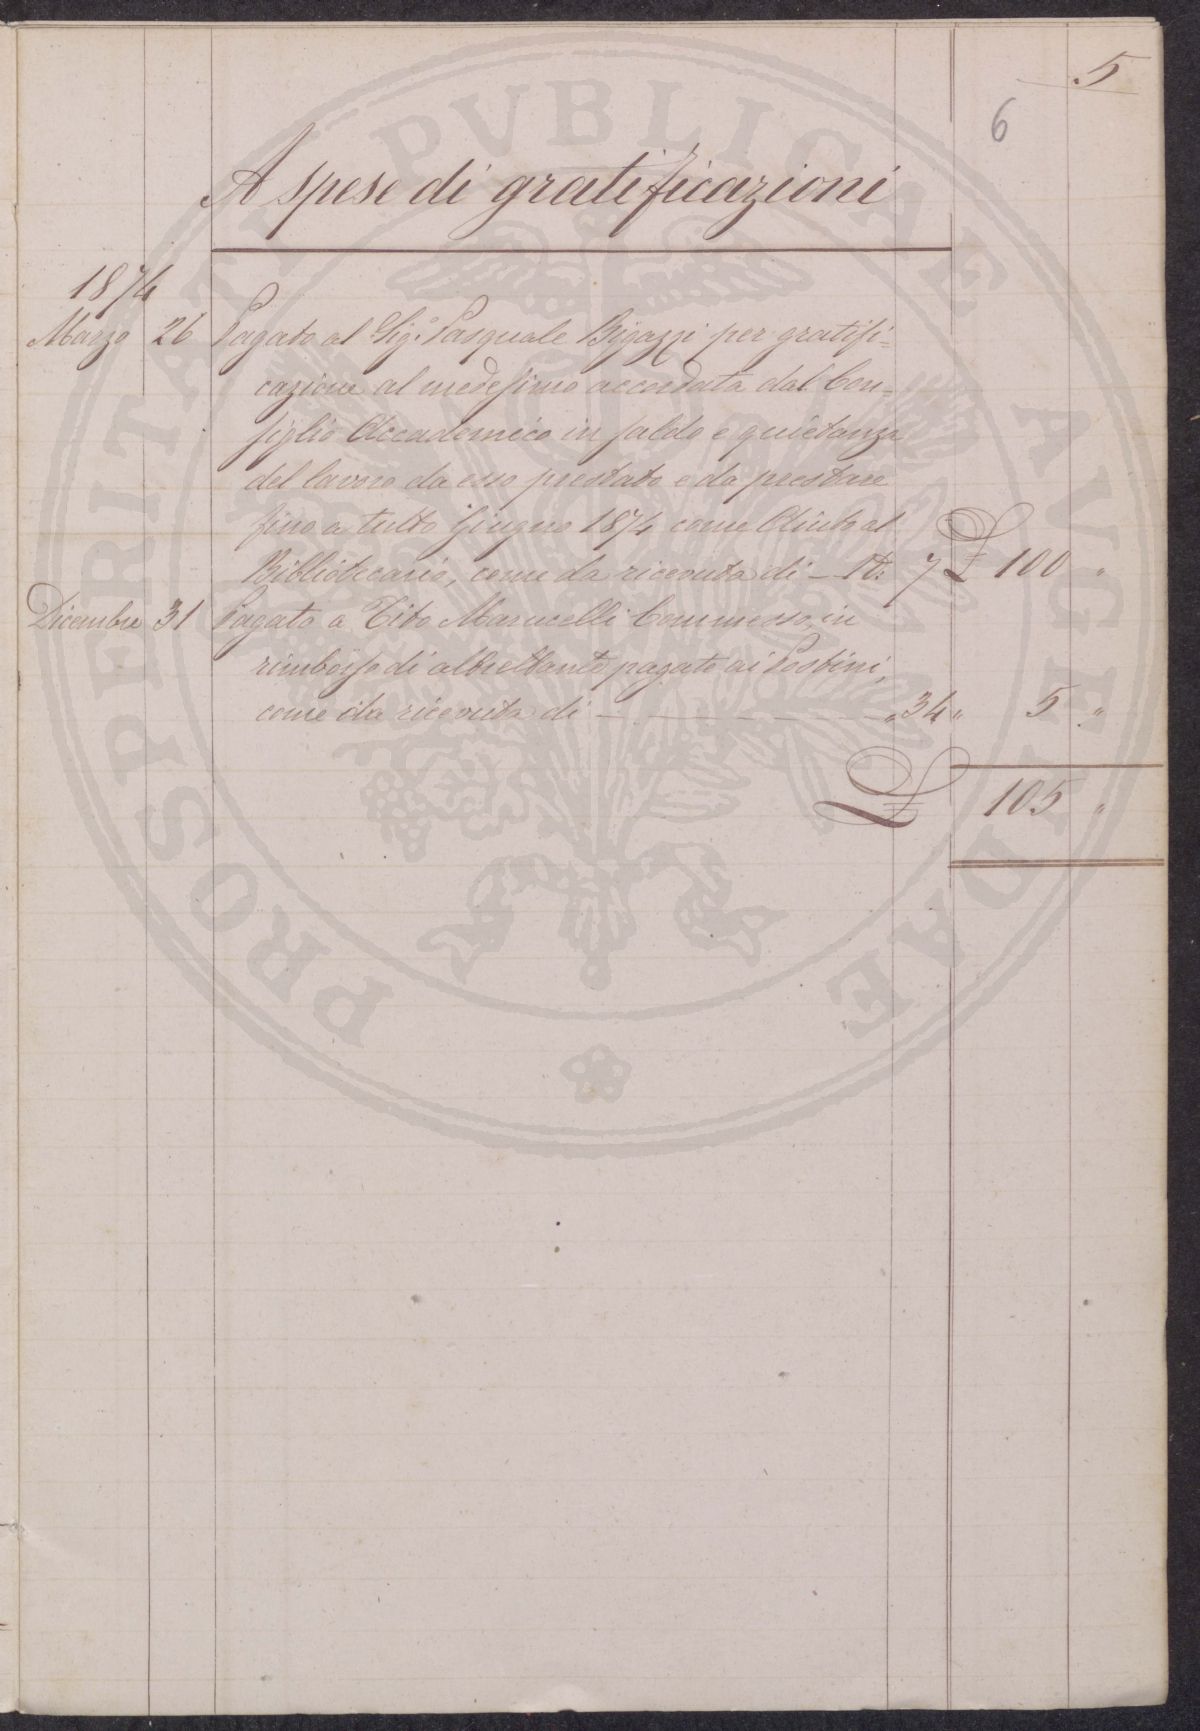 5
6
A spese di gratificazioni
1874
Marzo 26 Pagato al Sig.e Pasquale Bigazzi per gratifi=
cazione al medesimo accordata dal Con=
siglio Accademico in saldo e quietanza
del lavoro da esso prestato e da prestare
fino a tutto Giugno 1874 come Aiuto al
Bibliotecario, come da ricevuta di — N: 7 £ 100 "
Dicembre 31 Pagato a Tito Marucelli Commesso, in
rimborso di altrettante pagate ai Postini,
come da ricevuta di — " 34 " 5 "
£ 105 "
PROSPERITATI PVBLICAE AVGENDAE